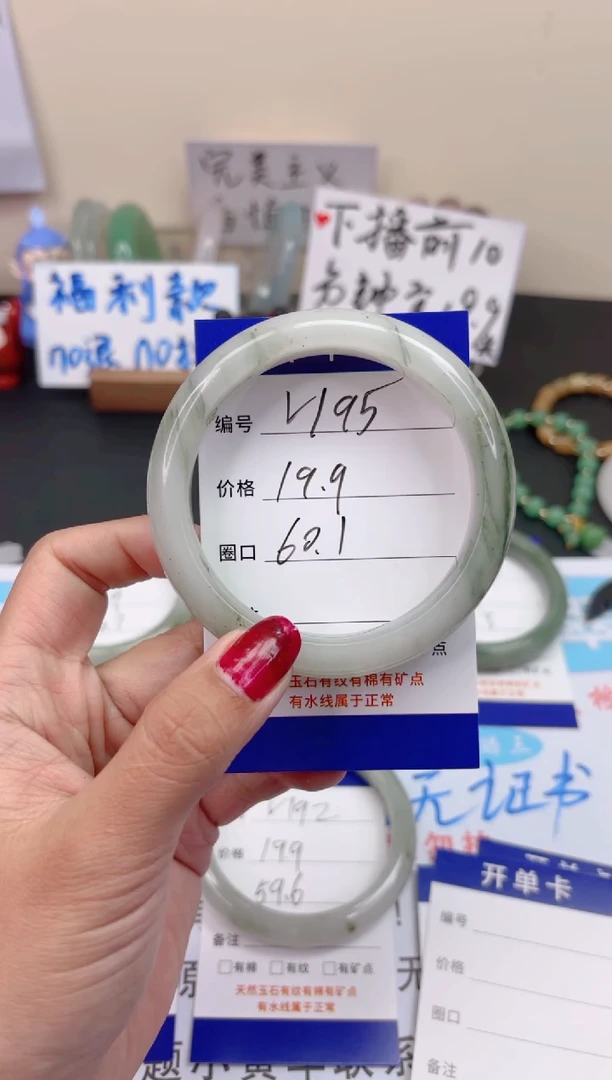 完美主义
下播前10
福利款
编号 V195
价格 19.9
圈口 60.1
点
玉石有纹有棉有矿点
有水线属于正常
无证书
V192
价格 199
59.6
备注
□有棉 □有纹 □有矿点
天然玉石有纹有棉有矿点
有水线属于正常
开单卡
编号
价格
圈口
备注